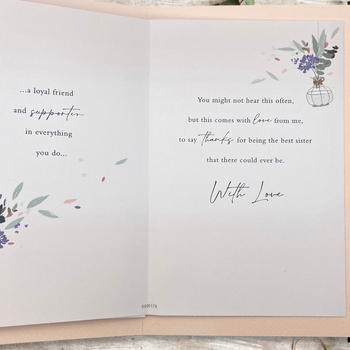 ...a loyal friend
and supporter
in everything
you do...
You might not hear this often,
but this comes with love from me,
to say thanks for being the best sister
that there could ever be.
With Love